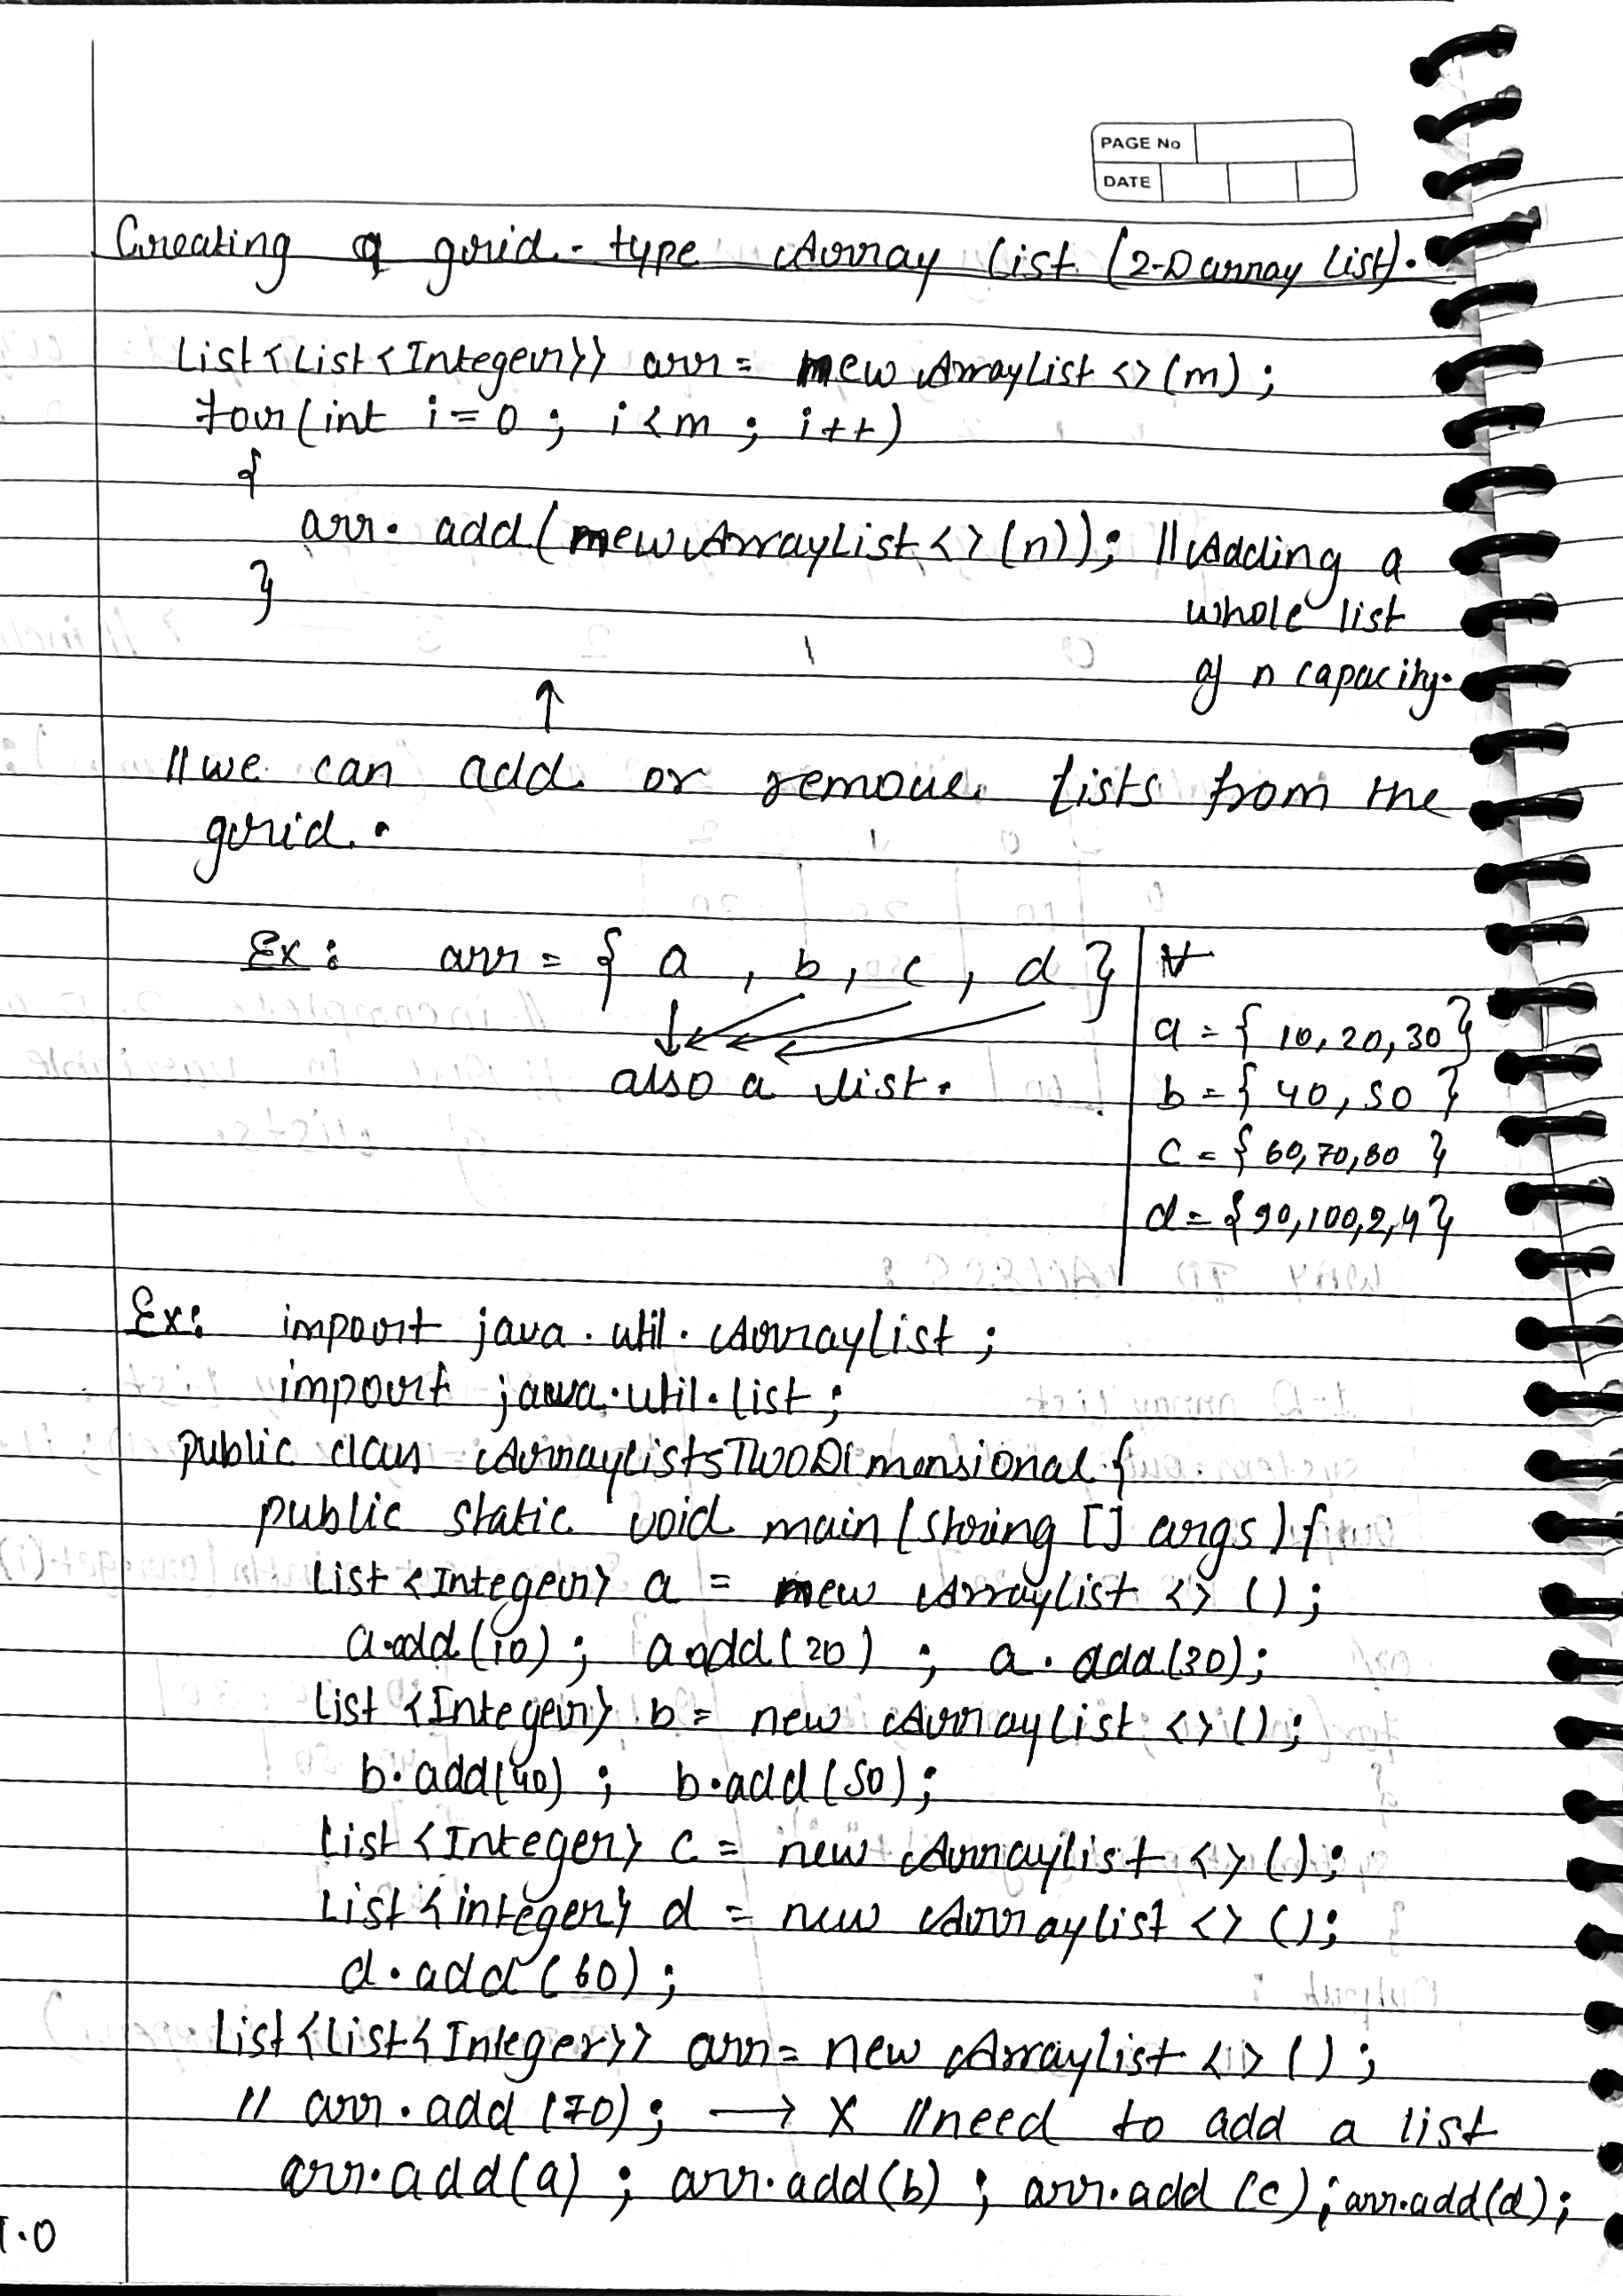 PAGE No
DATE
Creating a grid-type Array list (2-D array list).
List<List<Integer>> arr = new ArrayList<>(m);
for(int i=0; i<m; i++)
{
arr.add(new ArrayList<>(n)); // Adding a
whole list
of n capacity.
}
↑
// we can add or remove lists from the
grid.
Ex: arr = { a, b, c, d }
also a list.
a = { 10, 20, 30 }
b = { 40, 50 }
c = { 60, 70, 80 }
d = { 90, 100, 2, 4 }
Ex: import java.util.ArrayList;
import java.util.list;
public class ArraylistsTwoDimensional {
public static void main(string [] args) {
List <Integer> a = new Arraylist <> ();
a.add(10); a.add(20); a.add(30);
list <Integer> b = new Arraylist <> ();
b.add(40); b.add(50);
list <Integer> c = new Arraylist <> ();
List <integer> d = new Arraylist <> ();
d.add(60);
List<list<Integer>> arr = new Arraylist <> ();
// arr.add(70); → X // need to add a list
arr.add(a); arr.add(b); arr.add(c); arr.add(d);
T.O